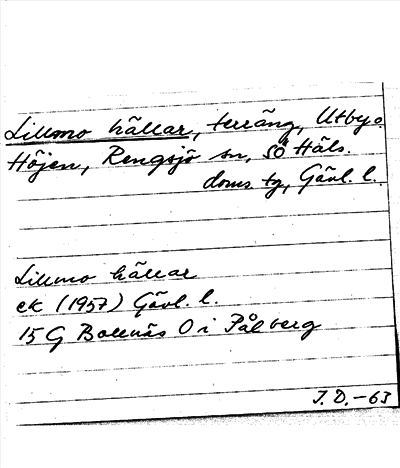 Lillmo hällar, terräng, Utby o.
Höjen, Rengsjö sn, SÖ Häls.
doms. tg, Gävl. l.
Lillmo hällar
ek (1957) Gävl. l.
15 G Bollnäs O i Pålberg
J. D. -63